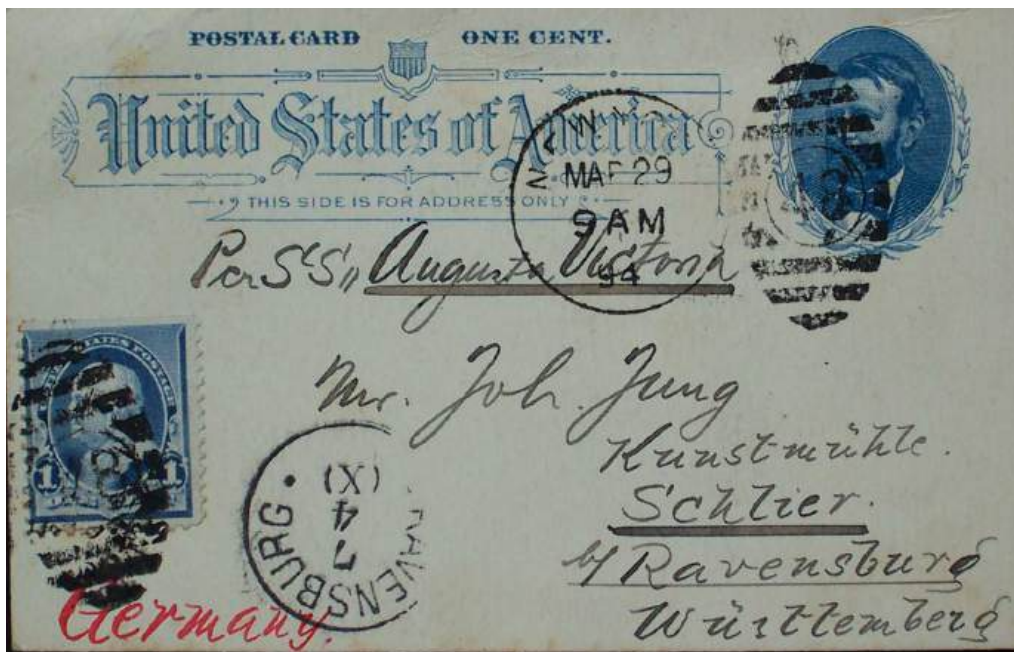 POSTAL CARD ONE CENT.
United States of America
THIS SIDE IS FOR ADDRESS ONLY
MAR 29
9 AM
94
Per S.S. „ Augusta Victoria
Mr. Joh. Jung
Kunstmühle.
Schlier.
b/ Ravensburg
Württemberg
1 1
RAVENSBURG.
7
4
(X)
Germany.